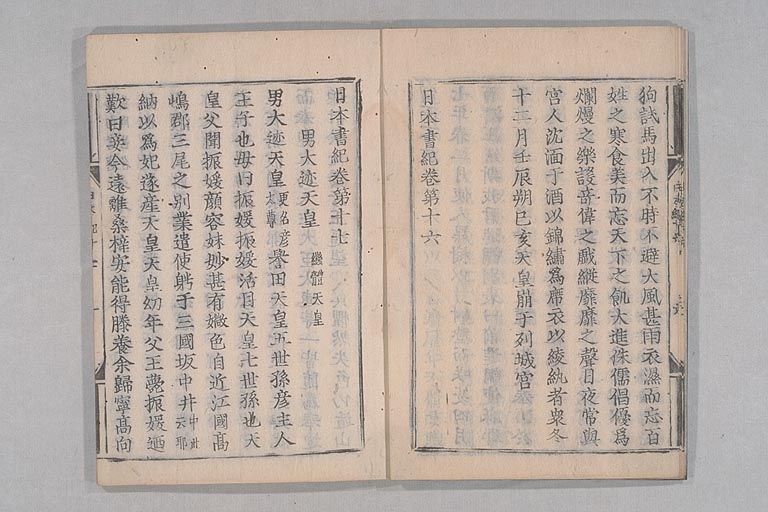 狗試馬出入不時不避大風甚雨衣溫而忘百
姓之寒食美而忘天下之飢大進侏儒倡優爲
爛熳之樂設奇偉之戲縱靡靡之聲日夜常與
宮人沈湎于酒以錦繡爲席衣以綾紈者衆冬
十二月壬辰朔己亥天皇崩于列城宮
日本書紀卷第十六
日本書紀卷第十七
男大迹天皇 繼體天皇
男大迹天皇 更名彦太尊 譽田天皇五世孫彦主人
王子也母曰振媛振媛活目天皇七世孫也天
皇父聞振媛顏容姝妙甚有媺色自近江國高
嶋郡三尾之別業遣使聘于三國坂中井 中此云那
納以爲妃遂産天皇天皇幼年父王薨振媛廼
歎曰妾今遠離桑梓安能得膝養余歸寧高向